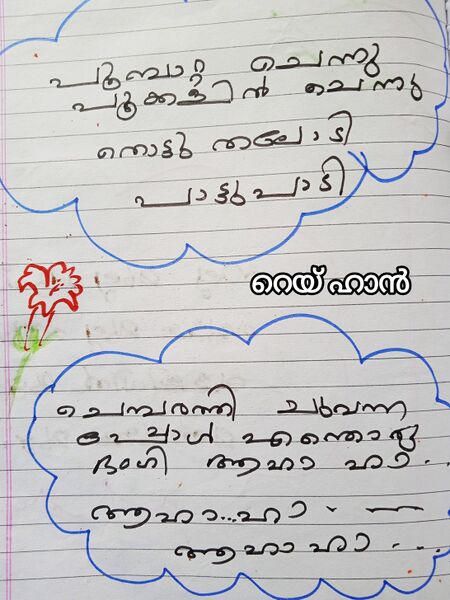 പൂമ്പാറ്റ ചെന്നു
പൂക്കളിൽ ചെന്നു
തൊട്ടു തലോടി
പാട്ടുപാടി
റെയ് ഹാൻ
ചെമ്പരത്തി ചുവന്ന
പ്പോൾ എന്തൊരു
ഭംഗി ആഹാ ഹാ...
ആഹാ...ഹാ - —
ആഹാ ഹാ...